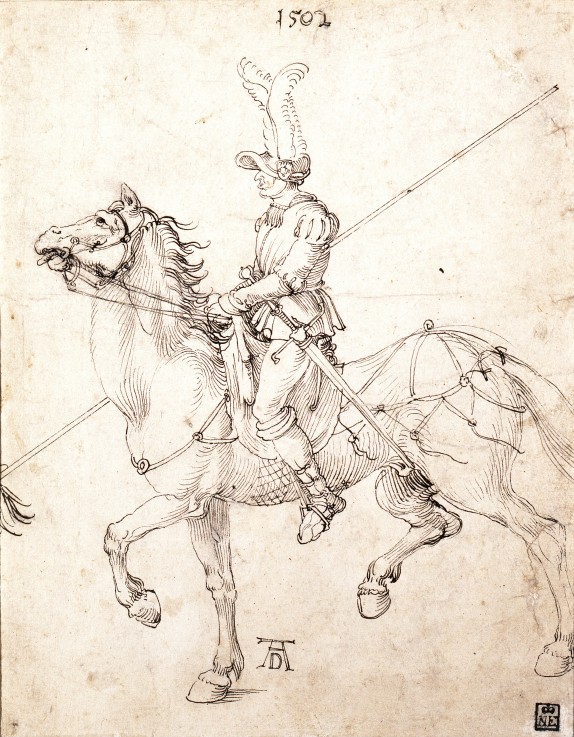 1502
AD
NE